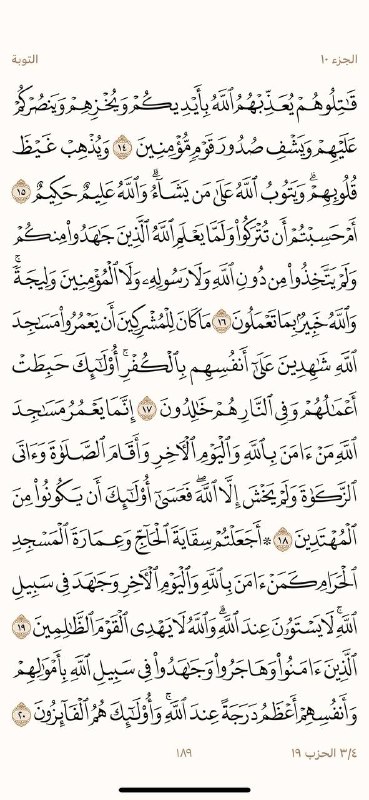 الجزء ١٠
التوبة
قَٰتِلُوهُمْ يُعَذِّبْهُمُ ٱللَّهُ بِأَيْدِيكُمْ وَيُخْزِهِمْ وَيَنصُرْكُمْ
عَلَيْهِمْ وَيَشْفِ صُدُورَ قَوْمٍ مُّؤْمِنِينَ ١٤ وَيُذْهِبْ غَيْظَ
قُلُوبِهِمْ ۗ وَيَتُوبُ ٱللَّهُ عَلَىٰ مَن يَشَآءُ ۗ وَٱللَّهُ عَلِيمٌ حَكِيمٌ ١٥
أَمْ حَسِبْتُمْ أَن تُتْرَكُوا۟ وَلَمَّا يَعْلَمِ ٱللَّهُ ٱلَّذِينَ جَٰهَدُوا۟ مِنكُمْ
وَلَمْ يَتَّخِذُوا۟ مِن دُونِ ٱللَّهِ وَلَا رَسُولِهِۦ وَلَا ٱلْمُؤْمِنِينَ وَلِيجَةً ۚ
وَٱللَّهُ خَبِيرٌۢ بِمَا تَعْمَلُونَ ١٦ مَا كَانَ لِلْمُشْرِكِينَ أَن يَعْمُرُوا۟ مَسَٰجِدَ
ٱللَّهِ شَٰهِدِينَ عَلَىٰٓ أَنفُسِهِم بِٱلْكُفْرِ ۚ أُو۟لَٰٓئِكَ حَبِطَتْ
أَعْمَٰلُهُمْ وَفِى ٱلنَّارِ هُمْ خَٰلِدُونَ ١٧ إِنَّمَا يَعْمُرُ مَسَٰجِدَ
ٱللَّهِ مَنْ ءَامَنَ بِٱللَّهِ وَٱلْيَوْمِ ٱلْءَاخِرِ وَأَقَامَ ٱلصَّلَوٰةَ وَءَاتَى
ٱلزَّكَوٰةَ وَلَمْ يَخْشَ إِلَّا ٱللَّهَ ۖ فَعَسَىٰٓ أُو۟لَٰٓئِكَ أَن يَكُونُوا۟ مِنَ
ٱلْمُهْتَدِينَ ١٨ ۞ أَجَعَلْتُمْ سِقَايَةَ ٱلْحَآجِّ وَعِمَارَةَ ٱلْمَسْجِدِ
ٱلْحَرَامِ كَمَنْ ءَامَنَ بِٱللَّهِ وَٱلْيَوْمِ ٱلْءَاخِرِ وَجَٰهَدَ فِى سَبِيلِ
ٱللَّهِ ۚ لَا يَسْتَوُۥنَ عِندَ ٱللَّهِ ۗ وَٱللَّهُ لَا يَهْدِى ٱلْقَوْمَ ٱلظَّٰلِمِينَ ١٩
ٱلَّذِينَ ءَامَنُوا۟ وَهَاجَرُوا۟ وَجَٰهَدُوا۟ فِى سَبِيلِ ٱللَّهِ بِأَمْوَٰلِهِمْ
وَأَنفُسِهِمْ أَعْظَمُ دَرَجَةً عِندَ ٱللَّهِ ۚ وَأُو۟لَٰٓئِكَ هُمُ ٱلْفَآئِزُونَ ٢٠
٣/٤ الحزب ١٩
١٨٩